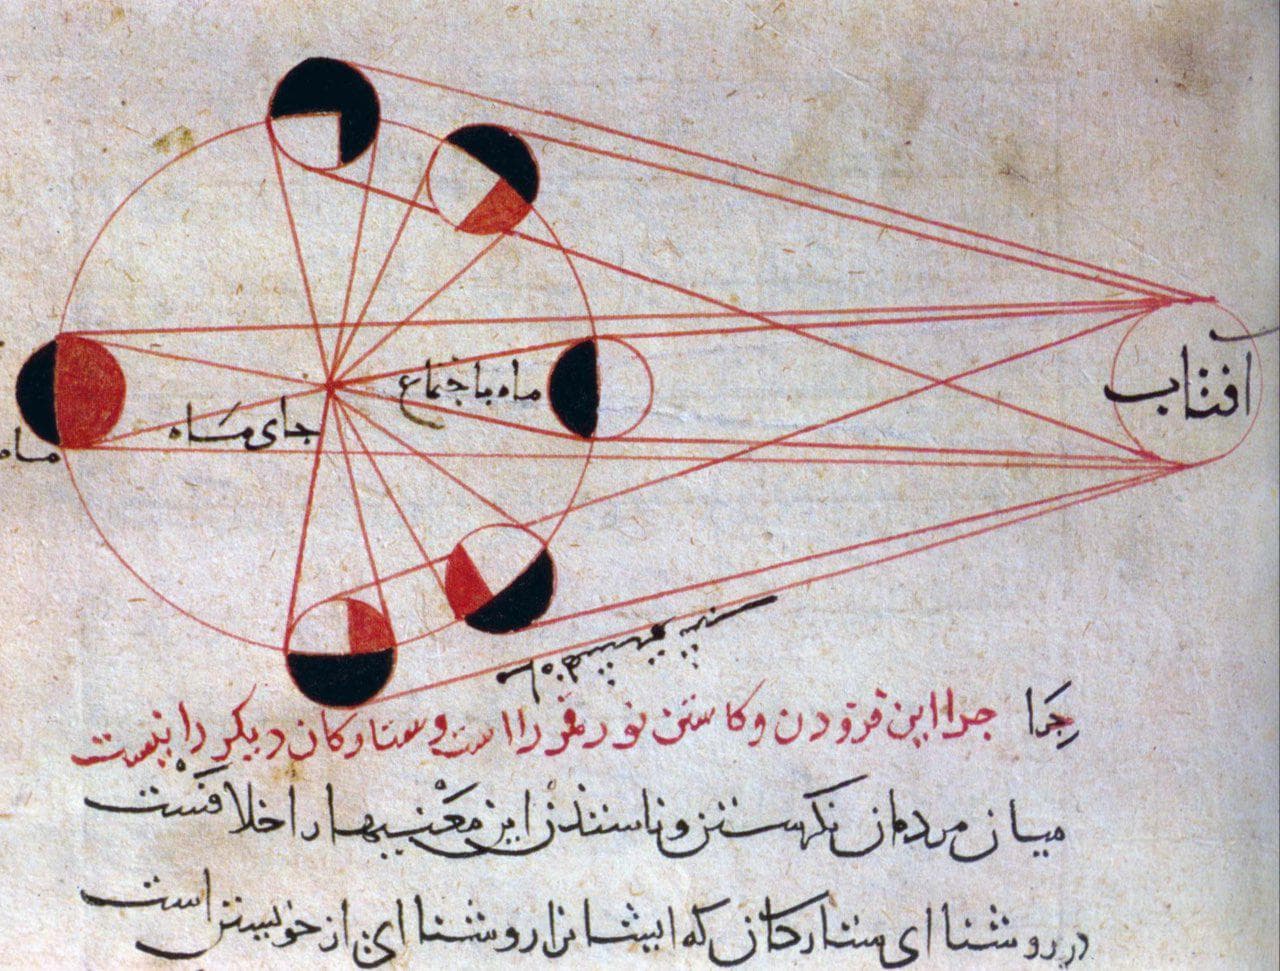 افتاب
ماه باجتماع
جای ماه
ماه
جرا جرا این فزودن وکاستن نور قمر را است وستارکان دیکر را نیست
میان مردمان نکرستن این معنیها را خلافست
در روشنا ای ستارکان که ایشانرا روشنا ای از خویشتن است